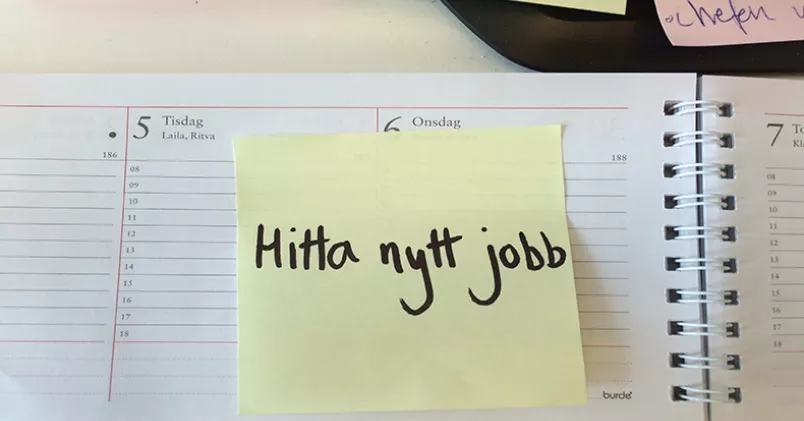 chefen
5 Tisdag
Laila, Ritva
6 Onsdag
7
186
188
08
09
10
11
12
13
14
15
16
17
18
Hitta nytt jobb
burde
08
09
10
11
12
13
14
15
16
17
18